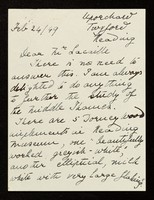 Feb 24/49
Twyford
Reading
Dear Mr Lacaille
There is no need to
answer this. I am always
delighted to do anything
to further the study of
the middle Thames.
There are 5 Torney wood
implements in Reading
Museum, one "beautifully
worked greyish-white"
and the elliptical, milk
white with very large flaking